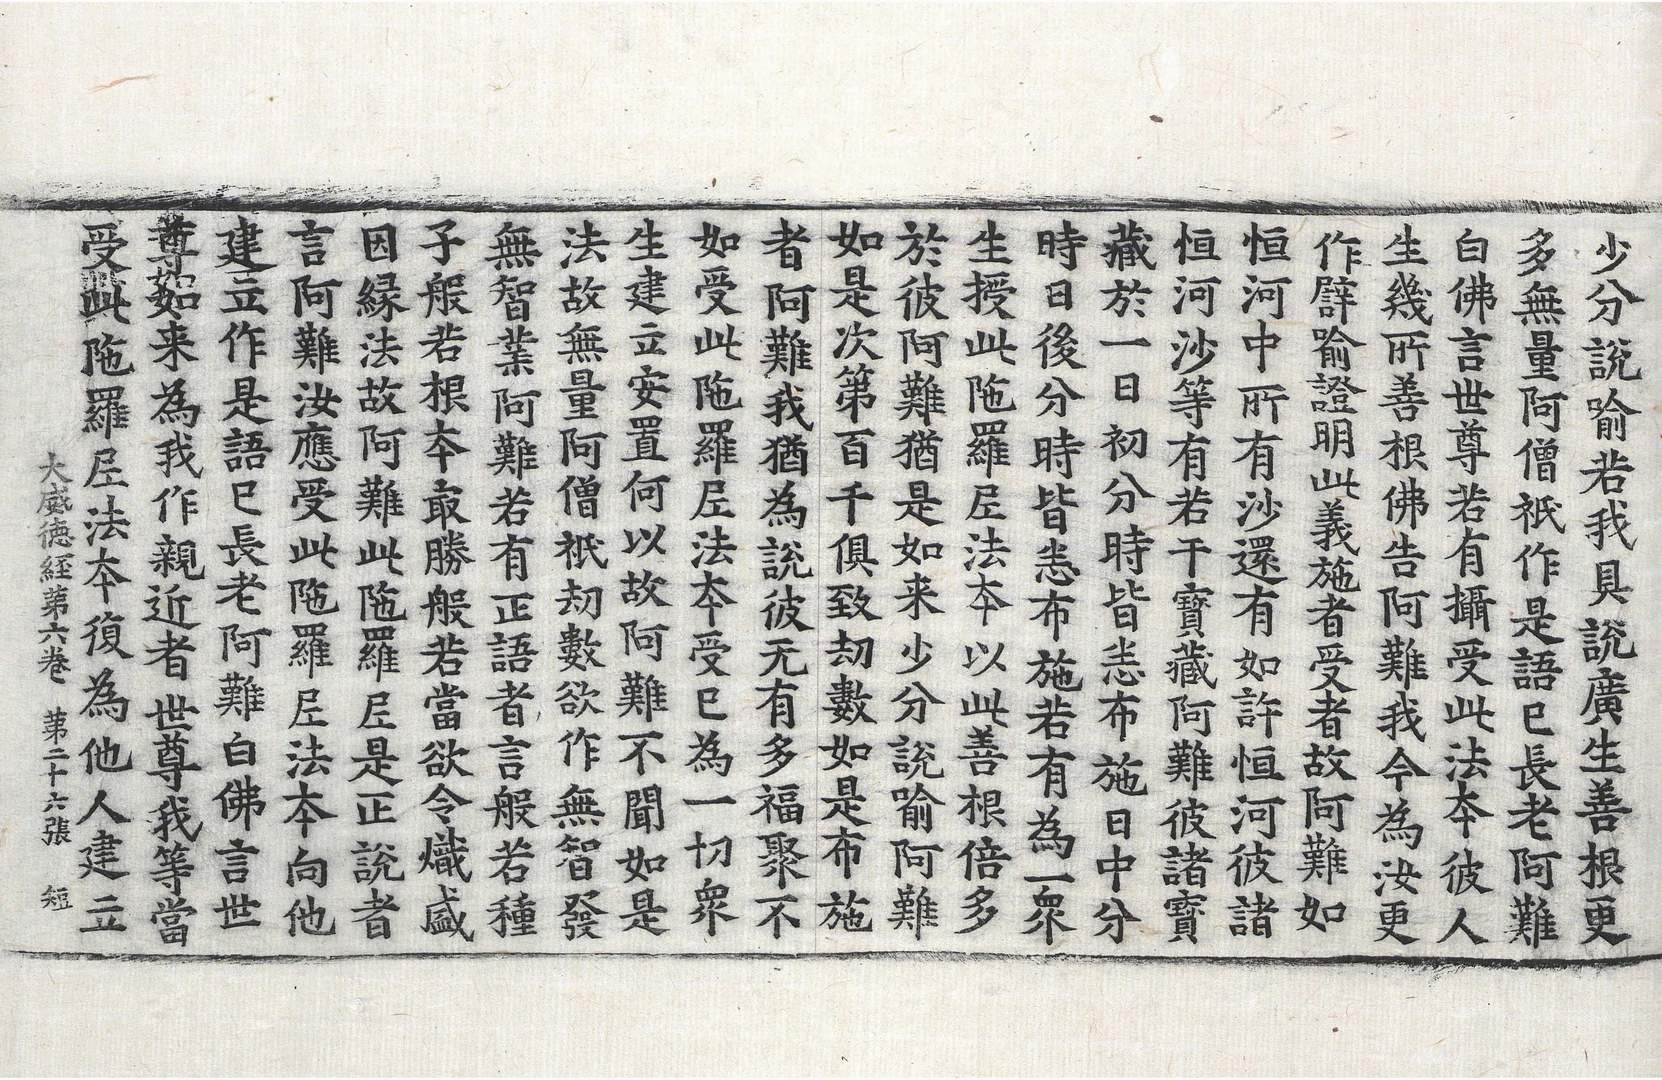 少分說喻若我具說廣生善根更
多無量阿僧祇作是語已長老阿難
白佛言世尊若有攝受此法本彼人
生幾所善根佛告阿難我今為汝更
作辟喻證明此義施者受者故阿難如
恒河中所有沙還有如許恒河彼諸
恒河沙等有若干寶藏阿難彼諸寶
藏於一日初分時皆悉布施日中分
時日後分時皆悉布施若有為一眾
生授此陁羅𡰱法本以此善根倍多
於彼阿難猶是如来少分說喻阿難
如是次第百千俱致劫數如是布施
者阿難我猶為說彼无有多福聚不
如受此陁羅𡰱法本受已為一切眾
生建立安置何以故阿難不聞如是
法故無量阿僧祇劫數欲作無智發
無智業阿難若有正語者言般若種
子般若根本㝡勝般若當欲令熾盛
因緣法故阿難此陁羅𡰱是正說者
言阿難汝應受此陁羅𡰱法本向他
建立作是語已長老阿難白佛言世
尊如来為我作親近者世尊我等當
受此陁羅𡰱法本復為他人建立
大威德經第六卷 第二十六張 短